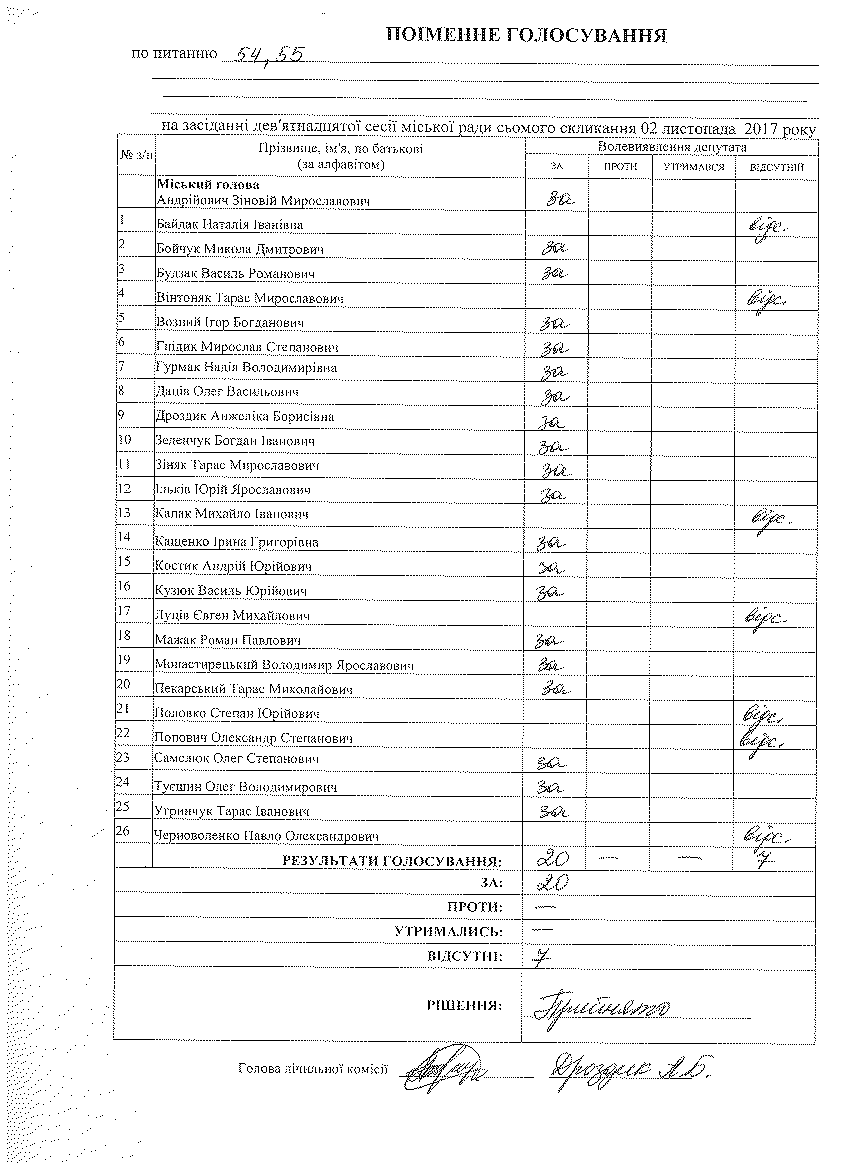 ПОІМЕННЕ ГОЛОСУВАННЯ
по питанню 54, 55
на засіданні дев'ятнадцятої сесії міської ради сьомого скликання 02 листопада 2017 року
№ з/п Прізвище, ім'я, по батькові (за алфавітом) Волевиявлення депутата
ЗА ПРОТИ УТРИМАВСЯ ВІДСУТНІЙ
Міський голова
Андрійович Зіновій Мирославович за
1 Байдак Наталія Іванівна відс.
2 Бойчук Микола Дмитрович за
3 Будзак Василь Романович за
4 Вінтоняк Тарас Мирославович відс.
5 Возний Ігор Богданович за
6 Гнідик Мирослав Степанович за
7 Гурмак Надія Володимирівна за
8 Даців Олег Васильович за
9 Дроздик Анжеліка Борисівна за
10 Зеленчук Богдан Іванович за
11 Зіняк Тарас Мирославович за
12 Ільків Юрій Ярославович за
13 Калак Михайло Іванович відс.
14 Кащенко Ірина Григорівна за
15 Костик Андрій Юрійович за
16 Кузюк Василь Юрійович за
17 Луців Євген Михайлович відс
18 Мажак Роман Павлович за
19 Монастирецький Володимир Ярославович за
20 Пекарський Тарас Миколайович за
21 Половко Степан Юрійович відс.
22 Попович Олександр Степанович відс.
23 Самелюк Олег Степанович за
24 Туєшин Олег Володимирович за
25 Угринчук Тарас Іванович за
26 Черноволенко Павло Олександрович відс.
РЕЗУЛЬТАТИ ГОЛОСУВАННЯ: 20 — — 7
ЗА: 20
ПРОТИ: —
УТРИМАЛИСЬ: —
ВІДСУТНІ: 7
РІШЕННЯ: Прийнято
Голова лічильної комісії Дроздик А.Б.